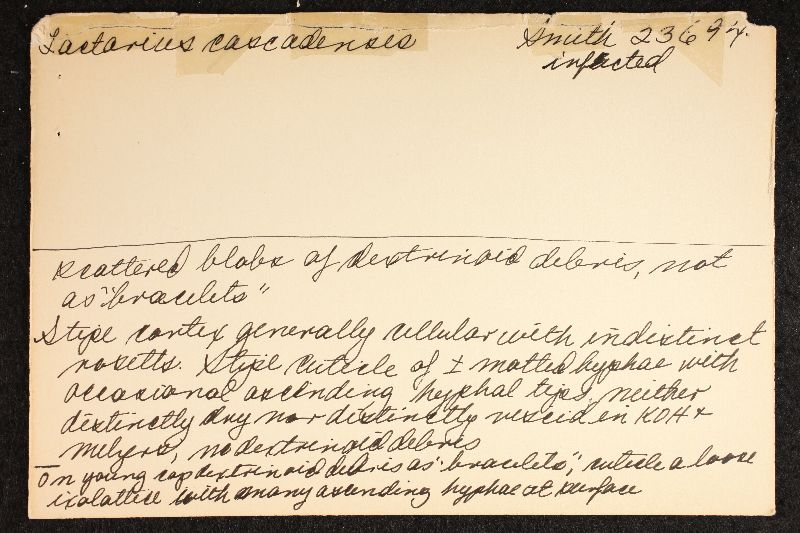 Lactarius cascadensis
Smith 23694.
infected
scattered blobs of dextrinoid debris, not
as "bracelets"
Stipe cortex generally cellular with indistinct
rosetts. Stipe cuticle of ± matted hyphae with
occasional ascending hyphal tips, neither
distinctly dry nor distinctly viscid in KOH +
Melzers, no dextrinoid debris
On young cap dextrinoid debris as "bracelets"; cuticle a loose
ixolattice with many ascending hyphae at surface